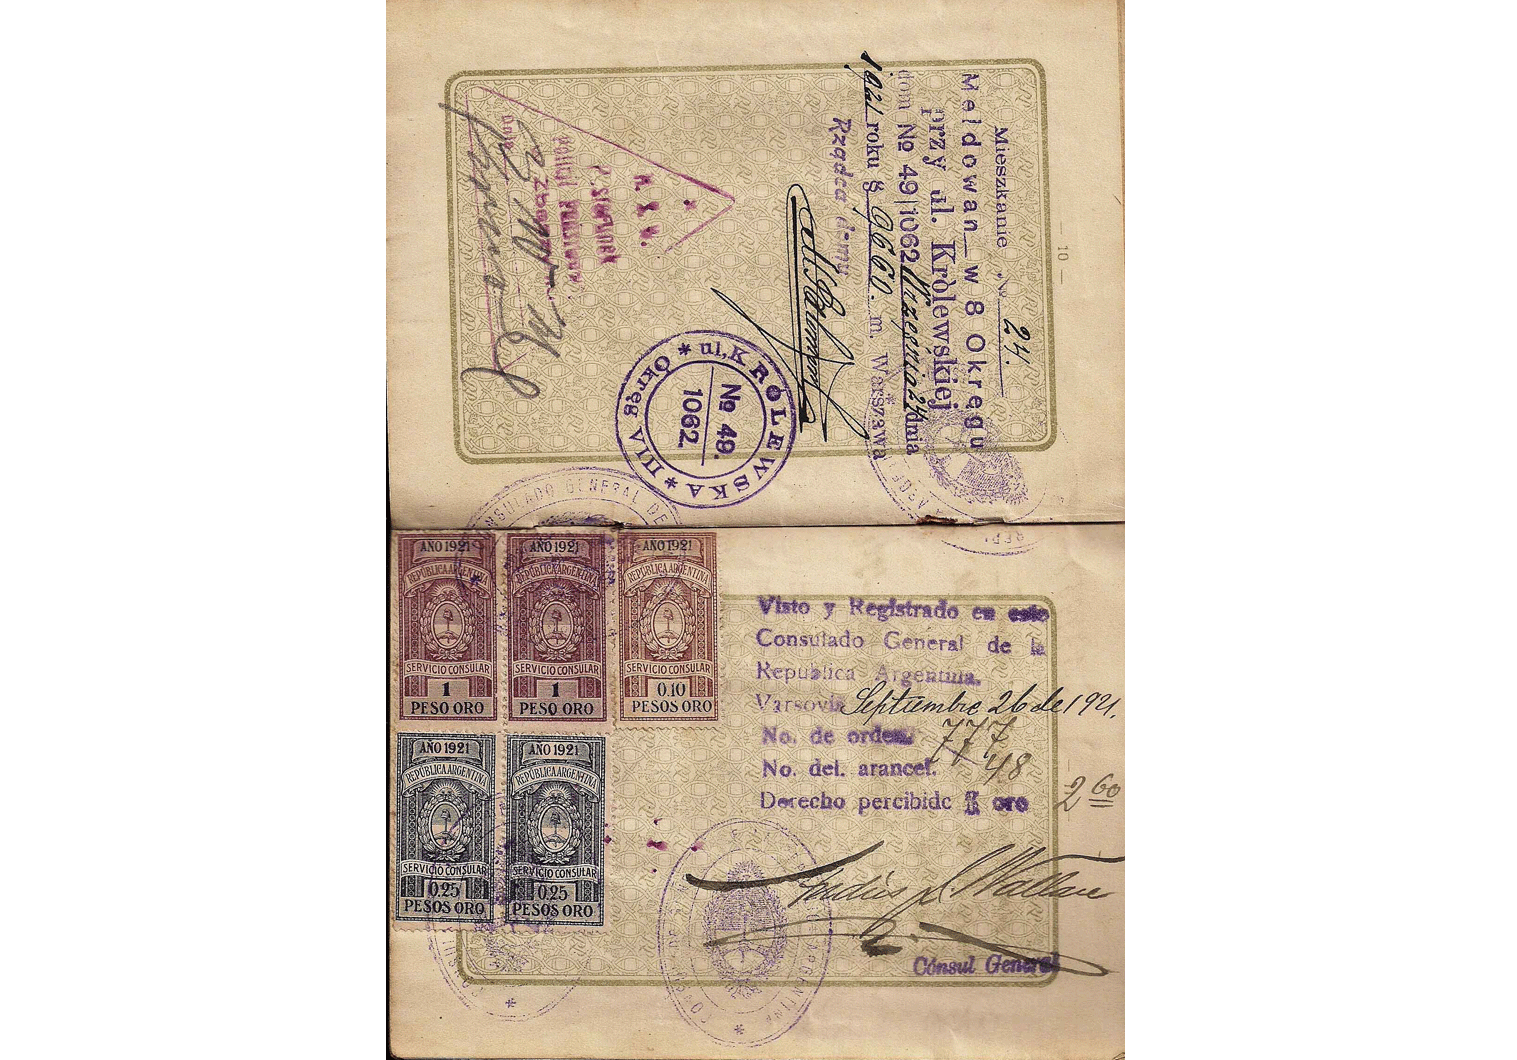 — 10 —
Mieszkanie № 24.
Meldowan w 8 Okręgu
przy ul. Królewskiej
dom № 49|1062 Września 24 dnia
1921 roku 8 9660. m. Warszawa
Rządca domu
ul. KRÓLEWSKA * IIIA Okręg *
№ 49.
1062.
M. S. W.
CONSULADO GENERAL DE
AÑO 1921
REPÚBLICA ARGENTINA
SERVICIO CONSULAR
1
PESO ORO
AÑO 1921
REPÚBLICA ARGENTINA
SERVICIO CONSULAR
1
PESO ORO
AÑO 1921
REPÚBLICA ARGENTINA
SERVICIO CONSULAR
0.10
PESOS ORO
AÑO 1921
REPÚBLICA ARGENTINA
SERVICIO CONSULAR
0.25
PESOS ORO
AÑO 1921
REPÚBLICA ARGENTINA
SERVICIO CONSULAR
0.25
PESOS ORO
Visto y Registrado en este
Consulado General de la
Republica Argentina.
Varsovia Septiembre 26 de 1921.
No. de orden. 777
No. del. arancel. 48
Derecho percibido $ oro 2 60
Cónsul General